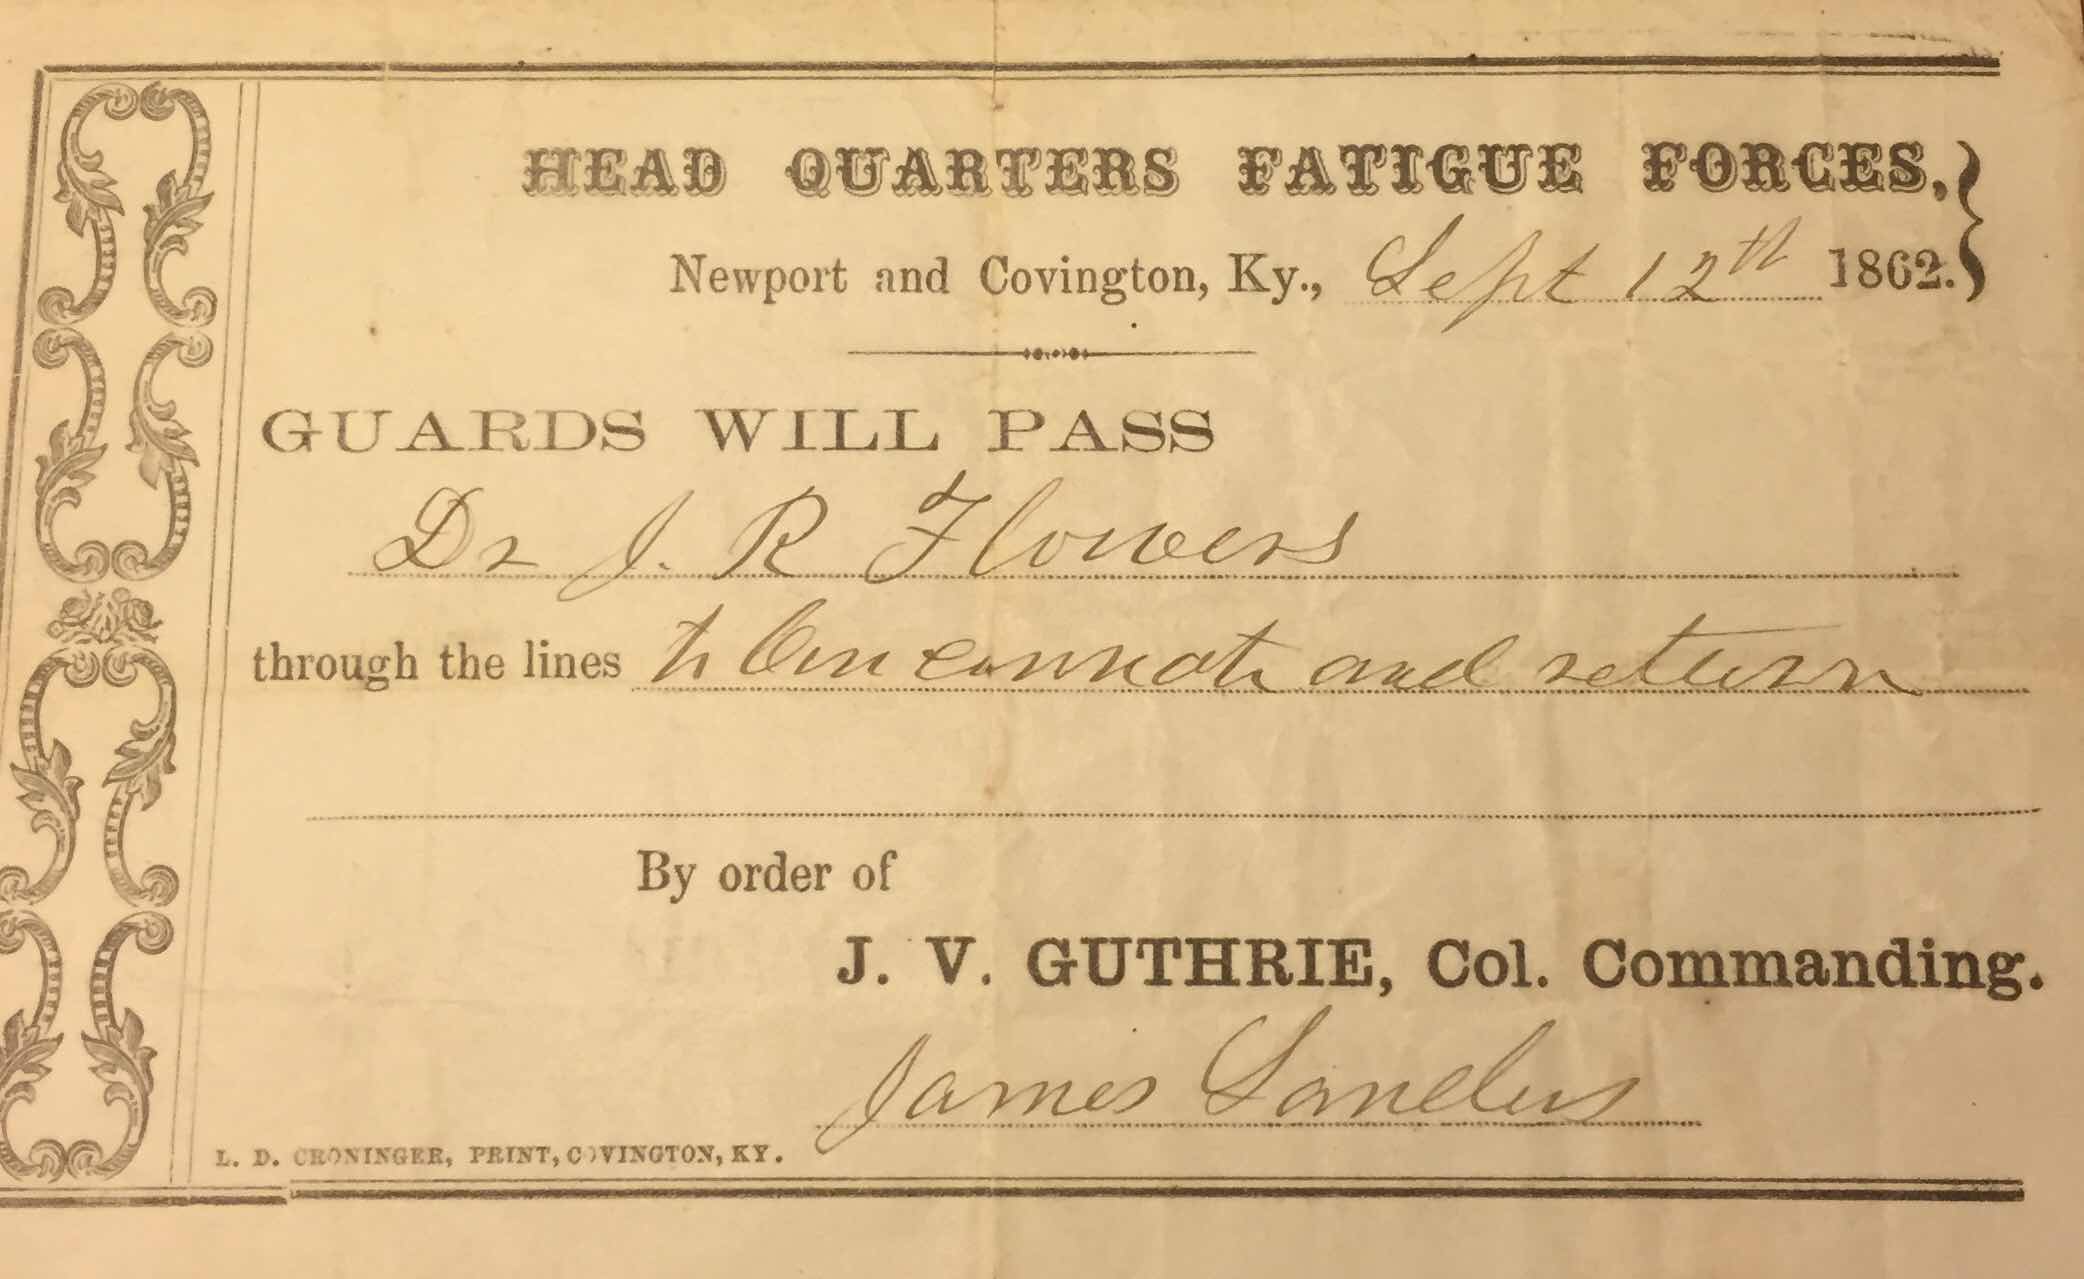 HEAD QUARTERS FATIGUE FORCES,
Newport and Covington, Ky., Sept 12th 1862.
GUARDS WILL PASS
Dr J. R Flowers
through the lines to Cincinnati and return
By order of
J. V. GUTHRIE, Col. Commanding.
James Sanders
L. D. CRONINGER, PRINT, COVINGTON, KY.